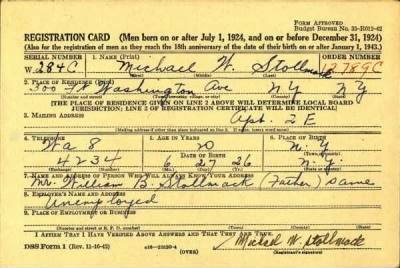 FORM APPROVED
Budget Bureau No. 33-R012-42
REGISTRATION CARD (Men born on or after July 1, 1924, and on or before December 31, 1924)
(Also for the registration of men as they reach the 18th anniversary of the date of their birth on or after January 1, 1943.)
SERIAL NUMBER 1. NAME (Print) ORDER NUMBER
W 284C Michael W. Stollmack 12789C
2. PLACE OF RESIDENCE (Print)
300 Ft Washington Ave N Y N Y
[THE PLACE OF RESIDENCE GIVEN ON LINE 2 ABOVE WILL DETERMINE LOCAL BOARD
JURISDICTION; LINE 2 OF REGISTRATION CERTIFICATE WILL BE IDENTICAL]
3. MAILING ADDRESS
Apt. 2E
[Mailing address if other than place indicated on line 2. If same, insert word same]
4. TELEPHONE 5. AGE IN YEARS 6. PLACE OF BIRTH
Wa 8 20 N.Y.
DATE OF BIRTH
4234 6 27 26 N.Y.
7. NAME AND ADDRESS OF PERSON WHO WILL ALWAYS KNOW YOUR ADDRESS
Mr. William B. Stollmack (Father) Same
8. EMPLOYER'S NAME AND ADDRESS
Unemployed
9. PLACE OF EMPLOYMENT OR BUSINESS
I AFFIRM THAT I HAVE VERIFIED ABOVE ANSWERS AND THAT THEY ARE TRUE.
DSS Form 1 (Rev. 11-16-42) (OVER) Michael W. Stollmack